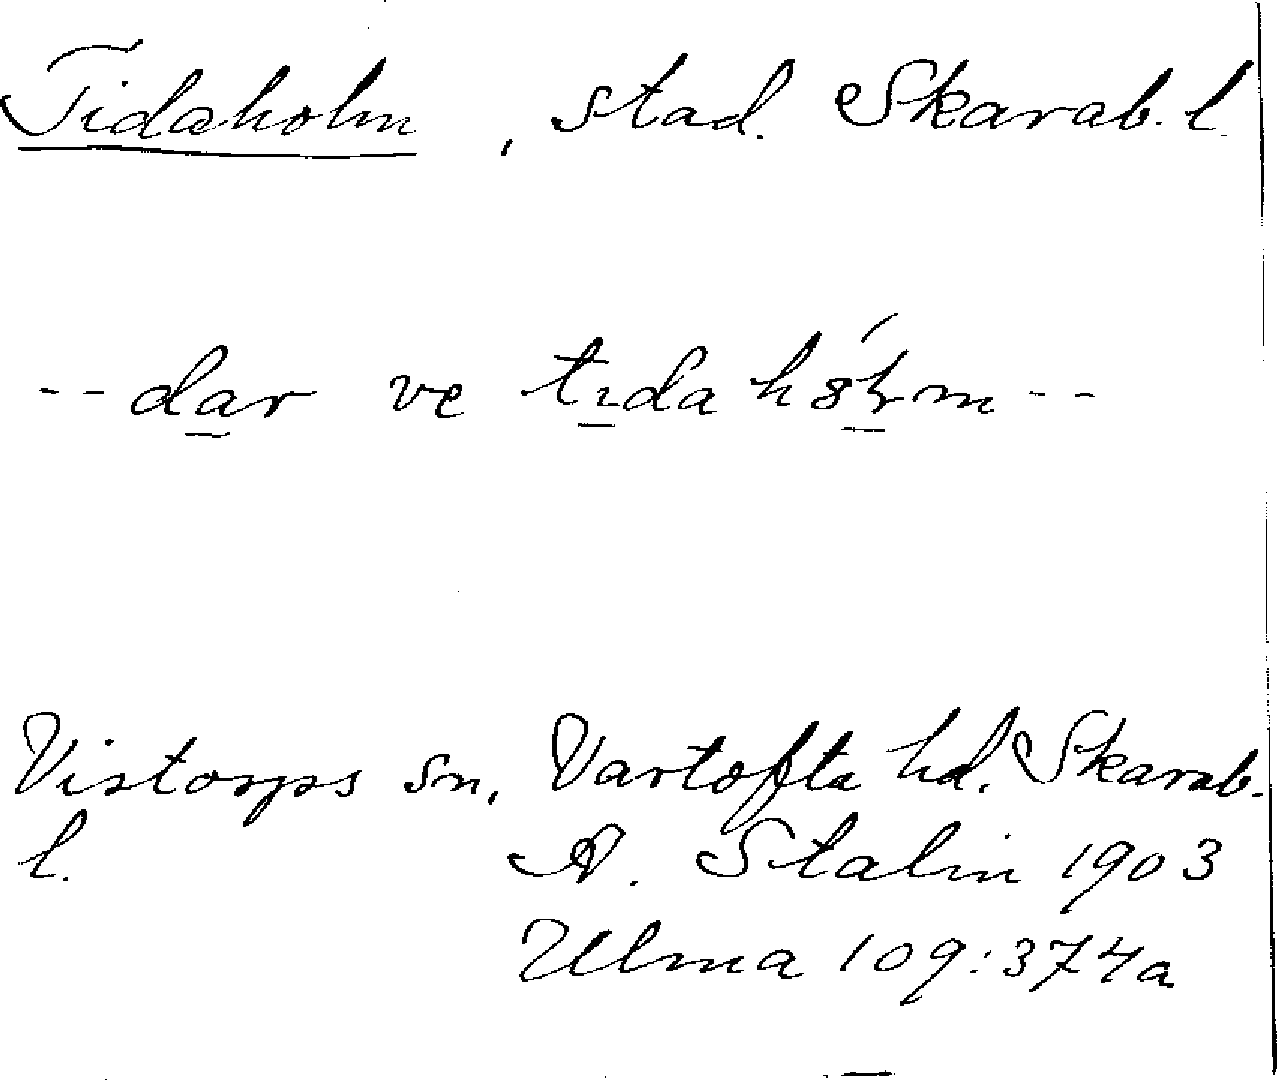 Tidaholm, stad. Skarab. l.
-- dar ve tıdahȣ́ɽm --
Vistorps sn, Vartofta hd. Skarab.
l. A. Stalin 1903
Ulma 109:374a